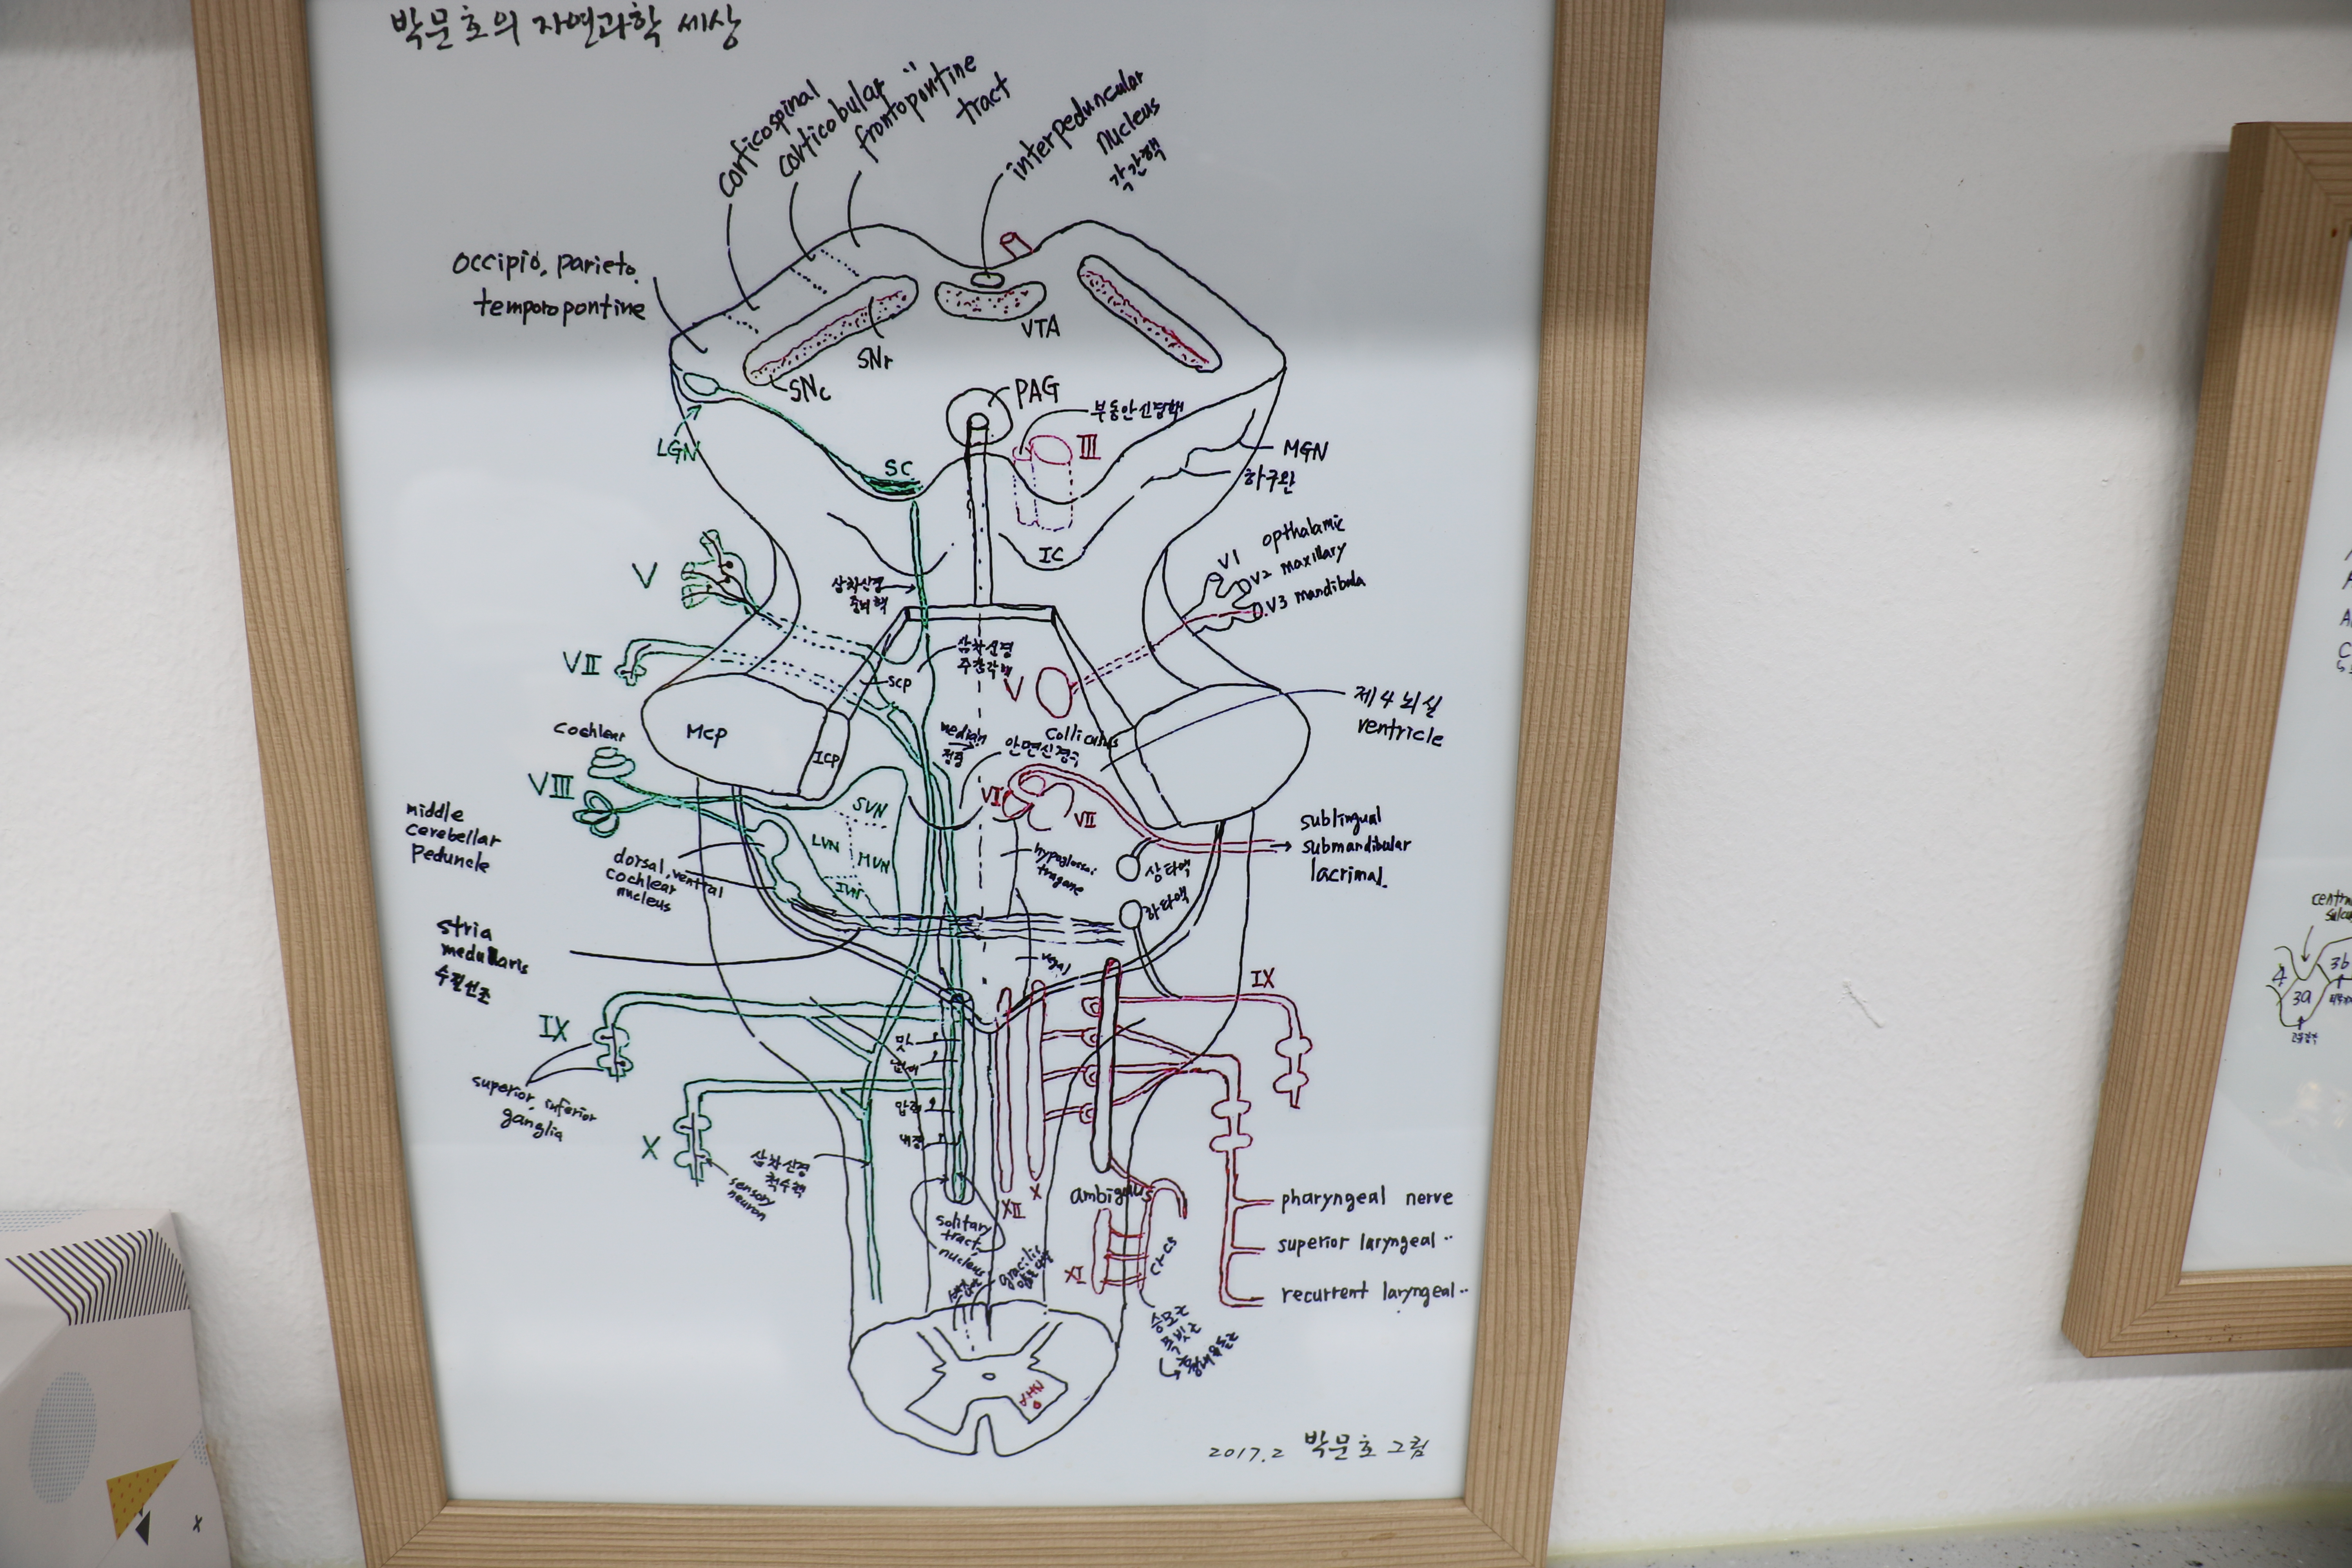 박문호의 자연과학 세상
corticospinal
corticobular ''
frontopontine
tract
interpeduncular
nucleus
각간핵
occipio, parieto.
temporopontine
SNr
SNc
VTA
PAG
부동안신경핵
III
LGN
SC
MGN
하구완
IC
V
삼차신경
중뇌핵
V1 opthalamic
V2 maxillary
V3 mandibula
VII
scp
삼차신경
V
제4뇌실
ventricle
Mcp
ICP
cochlear
median
colliculus
안면신경구
VIII
SVN
LVN
MVN
IVN
VI
VII
middle
cerebellar
Peduncle
dorsal, ventral
cochlear
nucleus
상타액
하타액
sublingual
submandibular
lacrimal.
stria
medullaris
수질선조
vagal
IX
IX
superior, inferior
ganglia
맛
압력
내장
X
sensory
neuron
삼차신경
척수핵
solitary
tract,
nucleus
gracilis
XII
X
ambiguus
XI
C1-C5
pharyngeal nerve
superior laryngeal ''
recurrent laryngeal ''
승모근
흉쇄유돌근
2017.2 박문호 그림
4
3a
3b